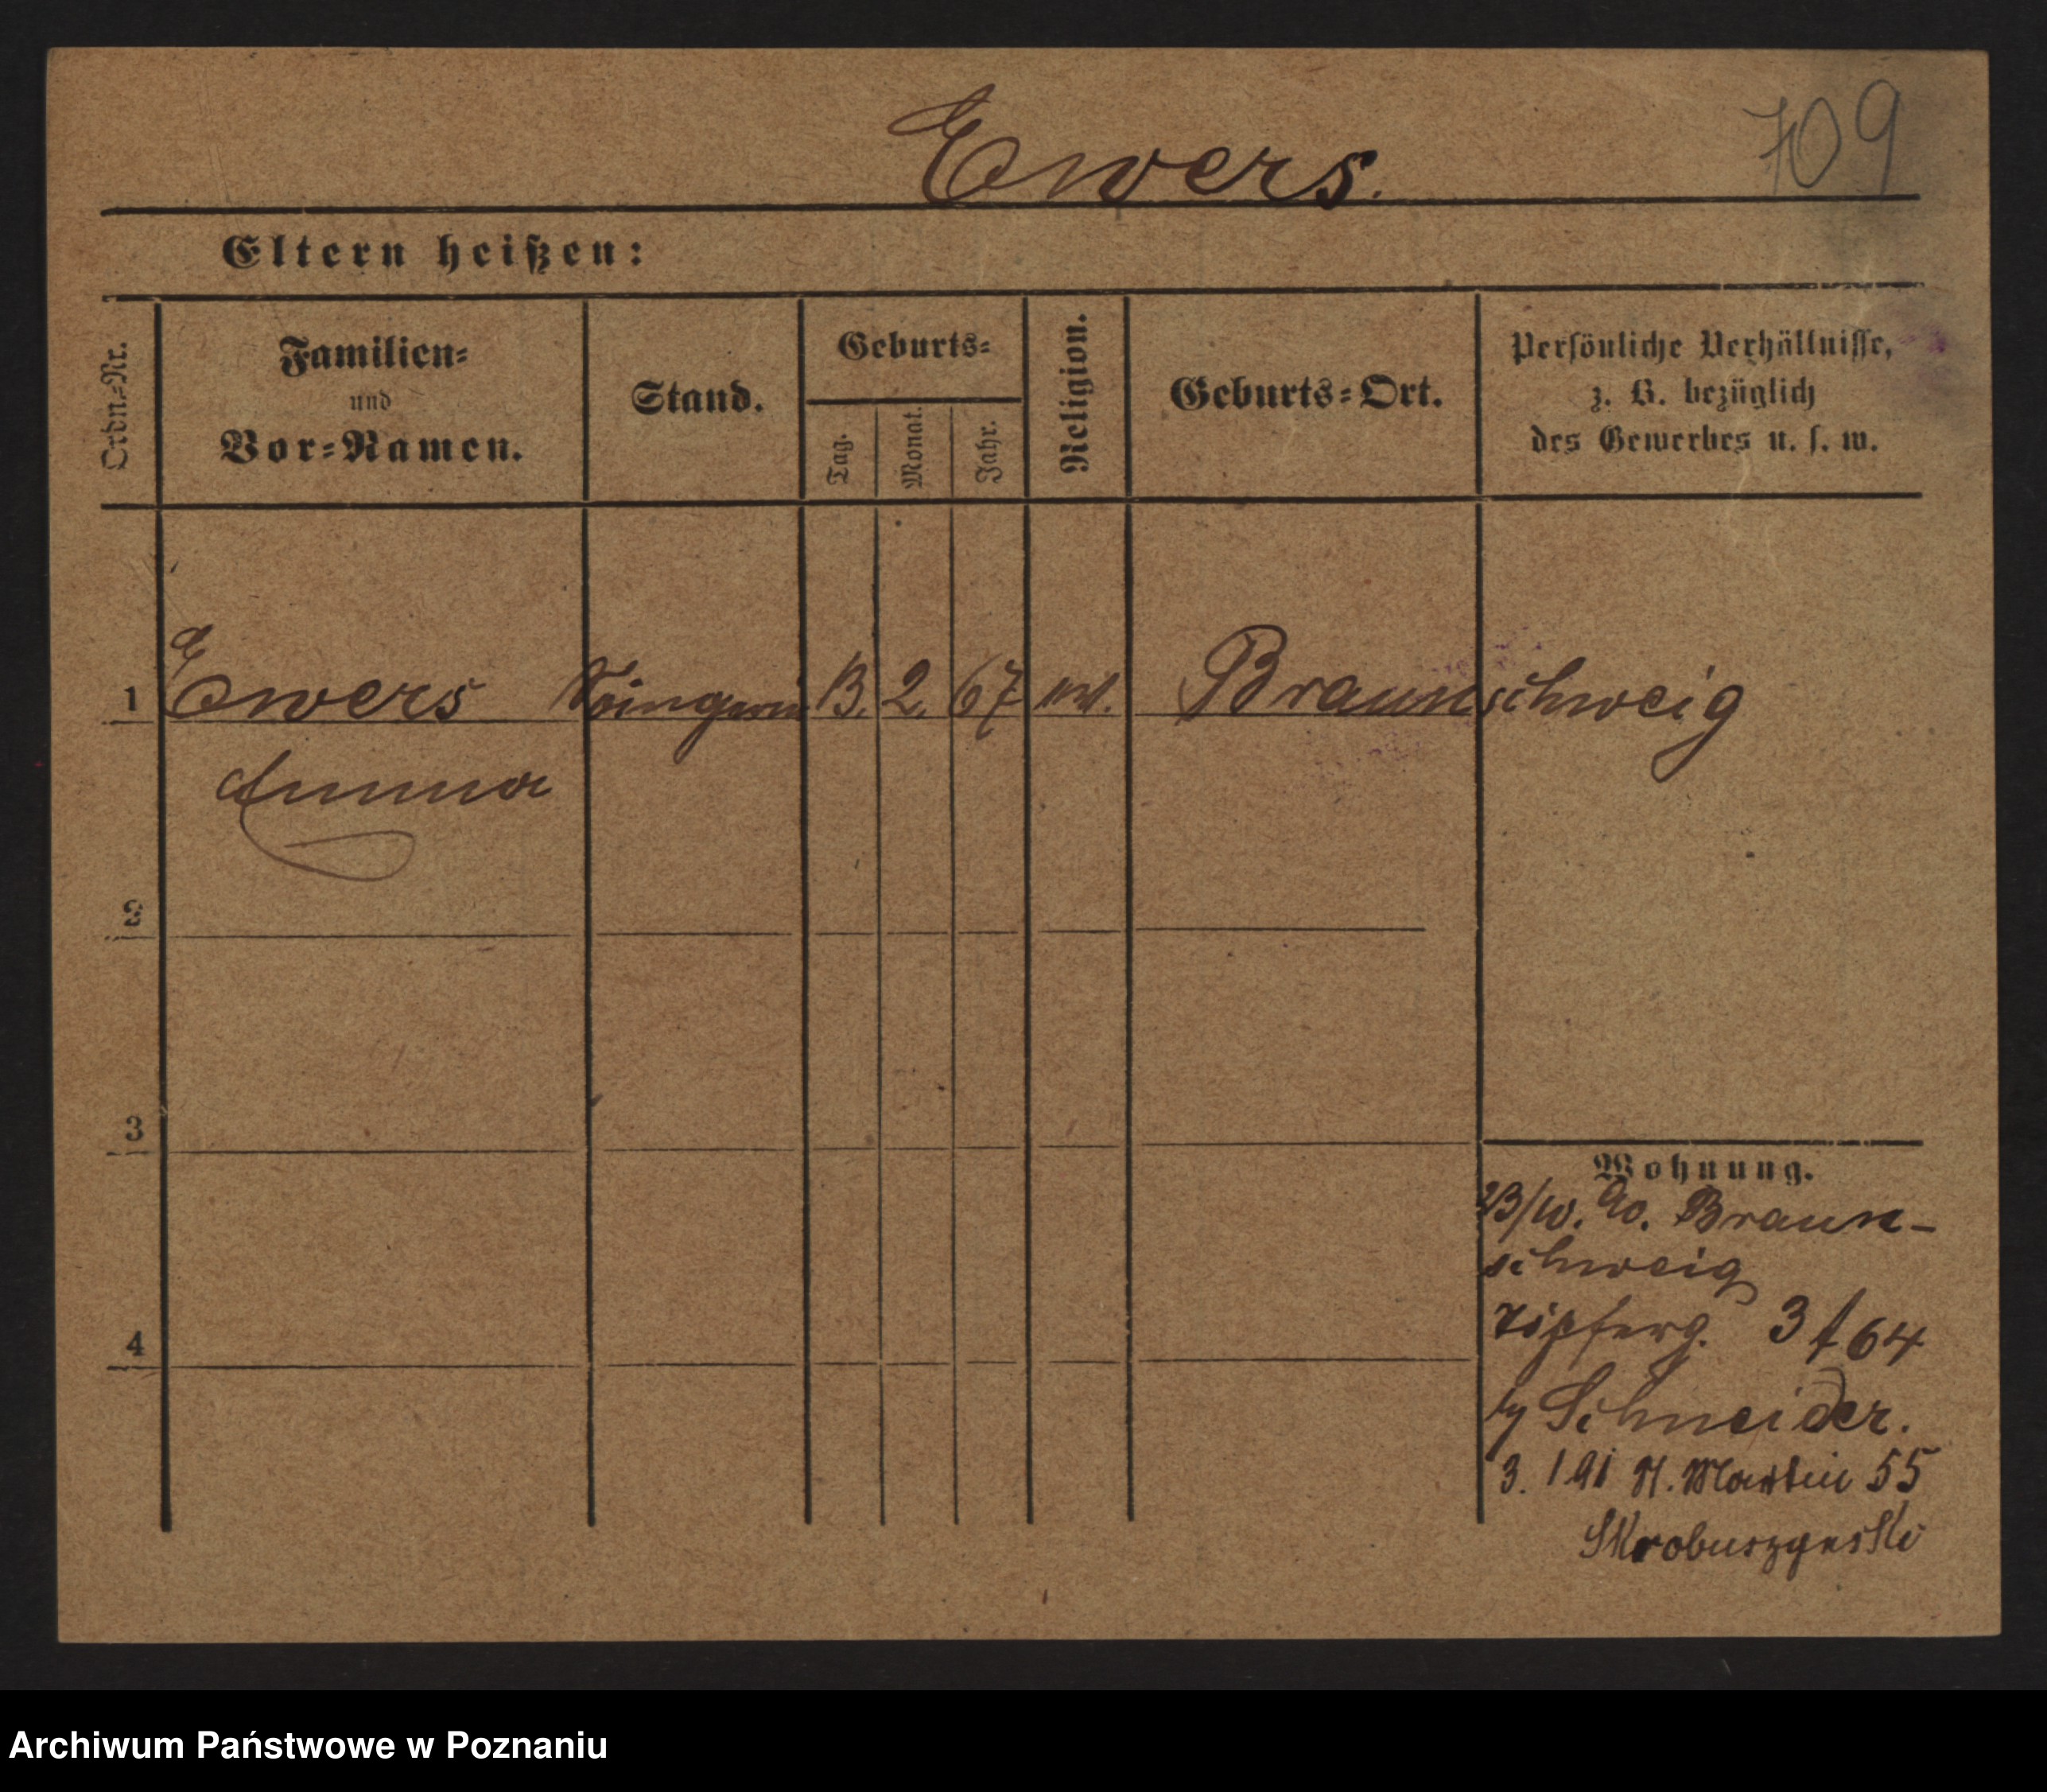 Ewers.
709
Eltern heißen:
Ordn.=Nr.
Familien=
und
Vor=Namen.
Stand.
Geburts=
Tag.
Monat.
Jahr.
Religion.
Geburts=Ort.
Persönliche Verhältnisse,
z. B. bezüglich
des Gewerbes u. s. w.
1 Ewers Sängerin 13. 2. 67 ev. Braunschweig
Emma
2
3
4
Wohnung.
Braun-
schweig
64
Schneider.
3. 1 91 St. Martin 55
Archiwum Państwowe w Poznaniu